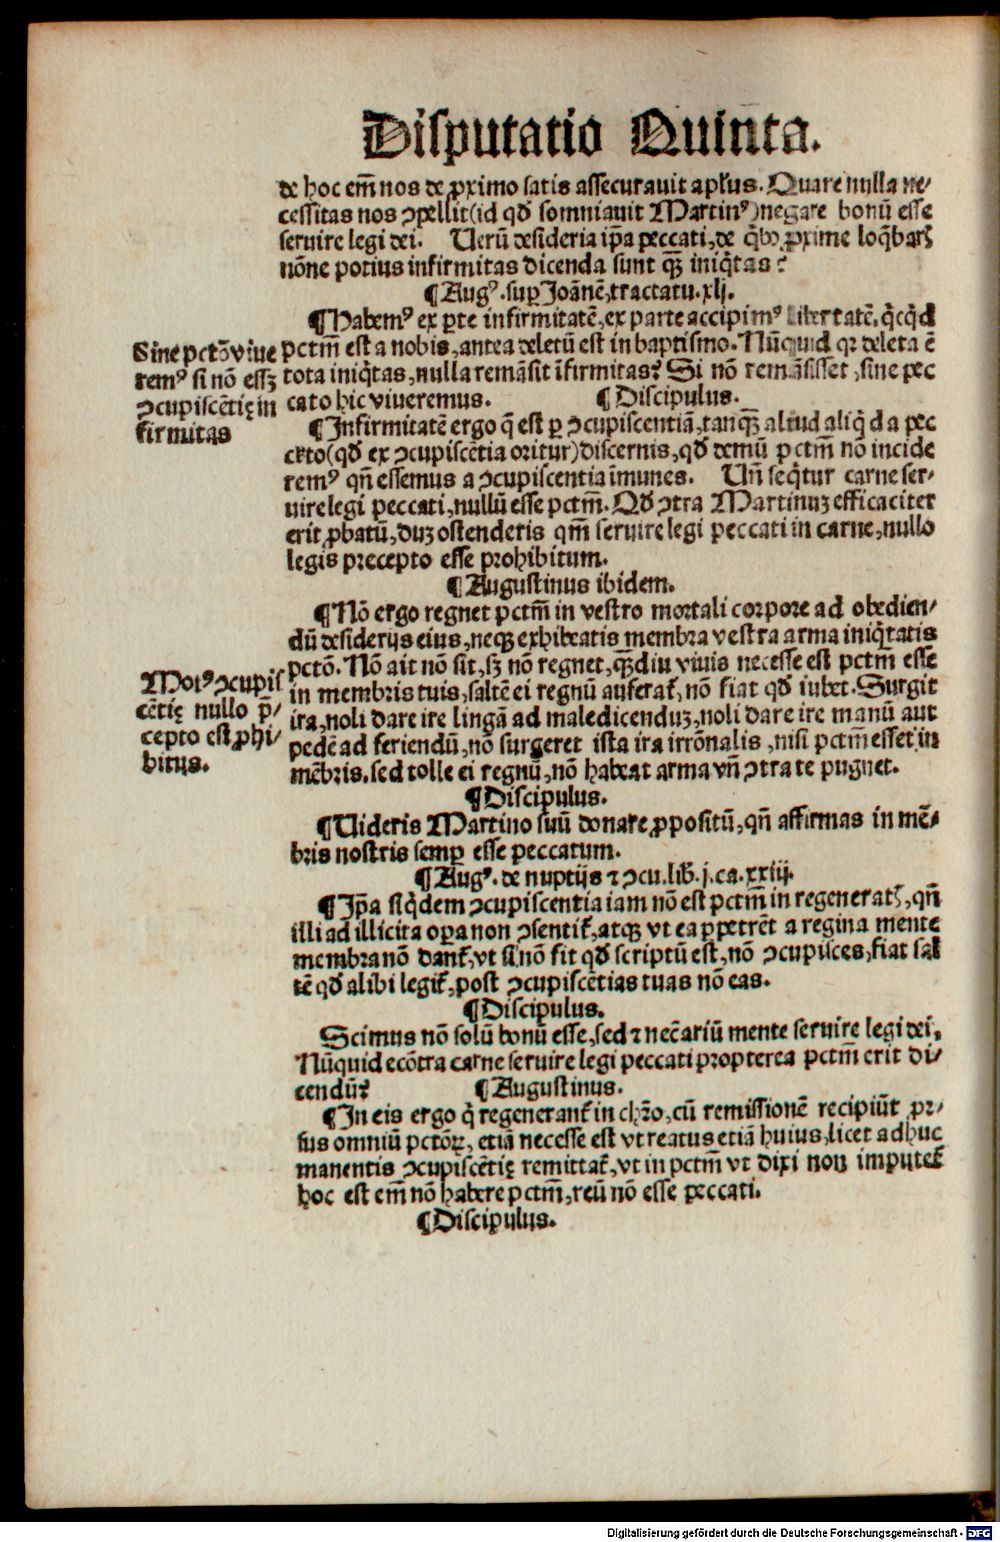 Disputatio Quinta.
de hoc em̄ nos de ꝓximo satis assecurauit apl'us. Quare nulla ne⸗
cessitas nos ↄpellit (id qd̄ somniauit Martinꝰ) negare bonū esse
seruire legi dei. Uerū desideria ip̄a peccati, de qͥbꝫ ꝓxime loqͣbarꝭ
nōne potius infirmitas dicenda sunt qꝫ̄ iniqͥtas?
¶Augꝰ. suꝑ Joānē, tractatu. xlj.
¶Habemꝰ ex ꝑte infirmitatē, ex parte accipimꝰ libertatē. qͥcqͥd
pctm̄ est a nobis, antea deletū est in baptismo. Nūquid qꝛ deleta ē
tota iniqͥtas, nulla remāsit īfirmitas? Si nō remāsisset, sine pec
cato hic viueremus. ¶Discipulus.
Sine pctō viue
remꝰ si nō essꝫ
ↄcupiscētię in
firmitas
¶Infirmitatē ergo q̄ est ꝑ ↄcupiscentiā, tanqꝫ̄ aliud aliqͥd a pec
cato (qd̄ ex ↄcupiscētia oritur) discernis, qd̄ demū pctm̄ nō incide
remꝰ qn̄ essemus a ↄcupiscentia īmunes. Un̄ seqͥtur carne ser⸗
uire legi peccati, nullū esse pctm̄. Qd̄ ↄtra Martinuꝫ efficaciter
erit ꝓbatū, duꝫ ostenderis qm̄ seruire legi peccati in carne, nullo
legis precepto esse prohibitum.
¶Augustinus ibidem.
¶Nō ergo regnet pctm̄ in vestro mortali corpore ad obedien⸗
dū desiderijs eius, neqꝫ exhibeatis membra vestra arma iniqͥtatis
pctō. Nō ait nō sit, sꝫ nō regnet, qꝫ̄diu viuis necesse est pctm̄ esse
in membris tuis, saltē ei regnū auferat᷑, nō fiat qd̄ iubet. Surgit
ira, noli dare ire lingā ad maledicenduꝫ, noli dare ire manū aut
pedē ad feriendū, nō surgeret ista ira irrōnalis, nisi pctm̄ esset in
mēbris. sed tolle ei regnū, nō habeat arma vn̄ ↄtra te pugnet.
Motꝰ ↄcupis
cētię nullo p̄⸗
cepto est ꝓhi⸗
bitus.
¶Discipulus.
¶Uideris Martino suū donare ꝓpositū, qn̄ affirmas in mē⸗
bris nostris semꝑ esse peccatum.
¶Augꝰ. de nuptijs ⁊ ↄcu. lib. j. ca. xxiij.
¶Ip̄a siqͥdem ↄcupiscentia iam nō est pctm̄ in regeneratꝭ, qn̄
illi ad illicita oꝑa non ↄsentit᷑, atqꝫ vt ea ꝑpetrēt a regina mente
membra nō dant᷑, vt si nō fit qd̄ scriptū est, nō ↄcupisces, fiat sal
tē qd̄ alibi legit᷑, post ↄcupiscētias tuas nō eas.
¶Discipulus.
Scimus nō solū bonū esse, sed ⁊ necc̄ariū mente seruire legi dei,
Nūquid ecōtra carne seruire legi peccati propterea pctm̄ erit di⸗
cendū? ¶Augustinus.
¶In eis ergo qͥ regenerant᷑ in chr̄o, cū remissionē recipiūt ꝓr⸗
sus omniū pctōꝝ, etiā necesse est vt reatus etiā huius, licet adhuc
manentis ↄcupiscētię remittat᷑, vt in pctm̄ vt dixi non imputet᷑
hoc est em̄ nō habere pctm̄, reū nō esse peccati.
¶Discipulus.
Digitalisierung gefördert durch die Deutsche Forschungsgemeinschaft - DFG